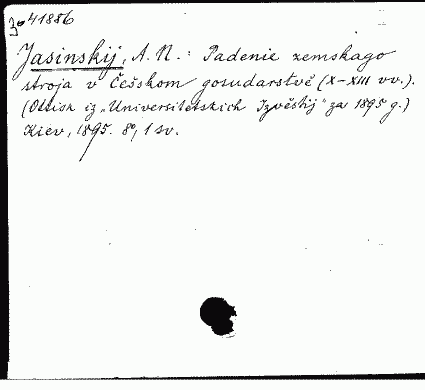 41886
Jasinskij, A. N.: Padenie zemskago
stroja v Češskom gosudarstvě (X-XIII vv.).
(Ottisk iz „Universitetskich Izvěstij" za 1895 g.)
Kiev, 1895. 8°, 1 sv.